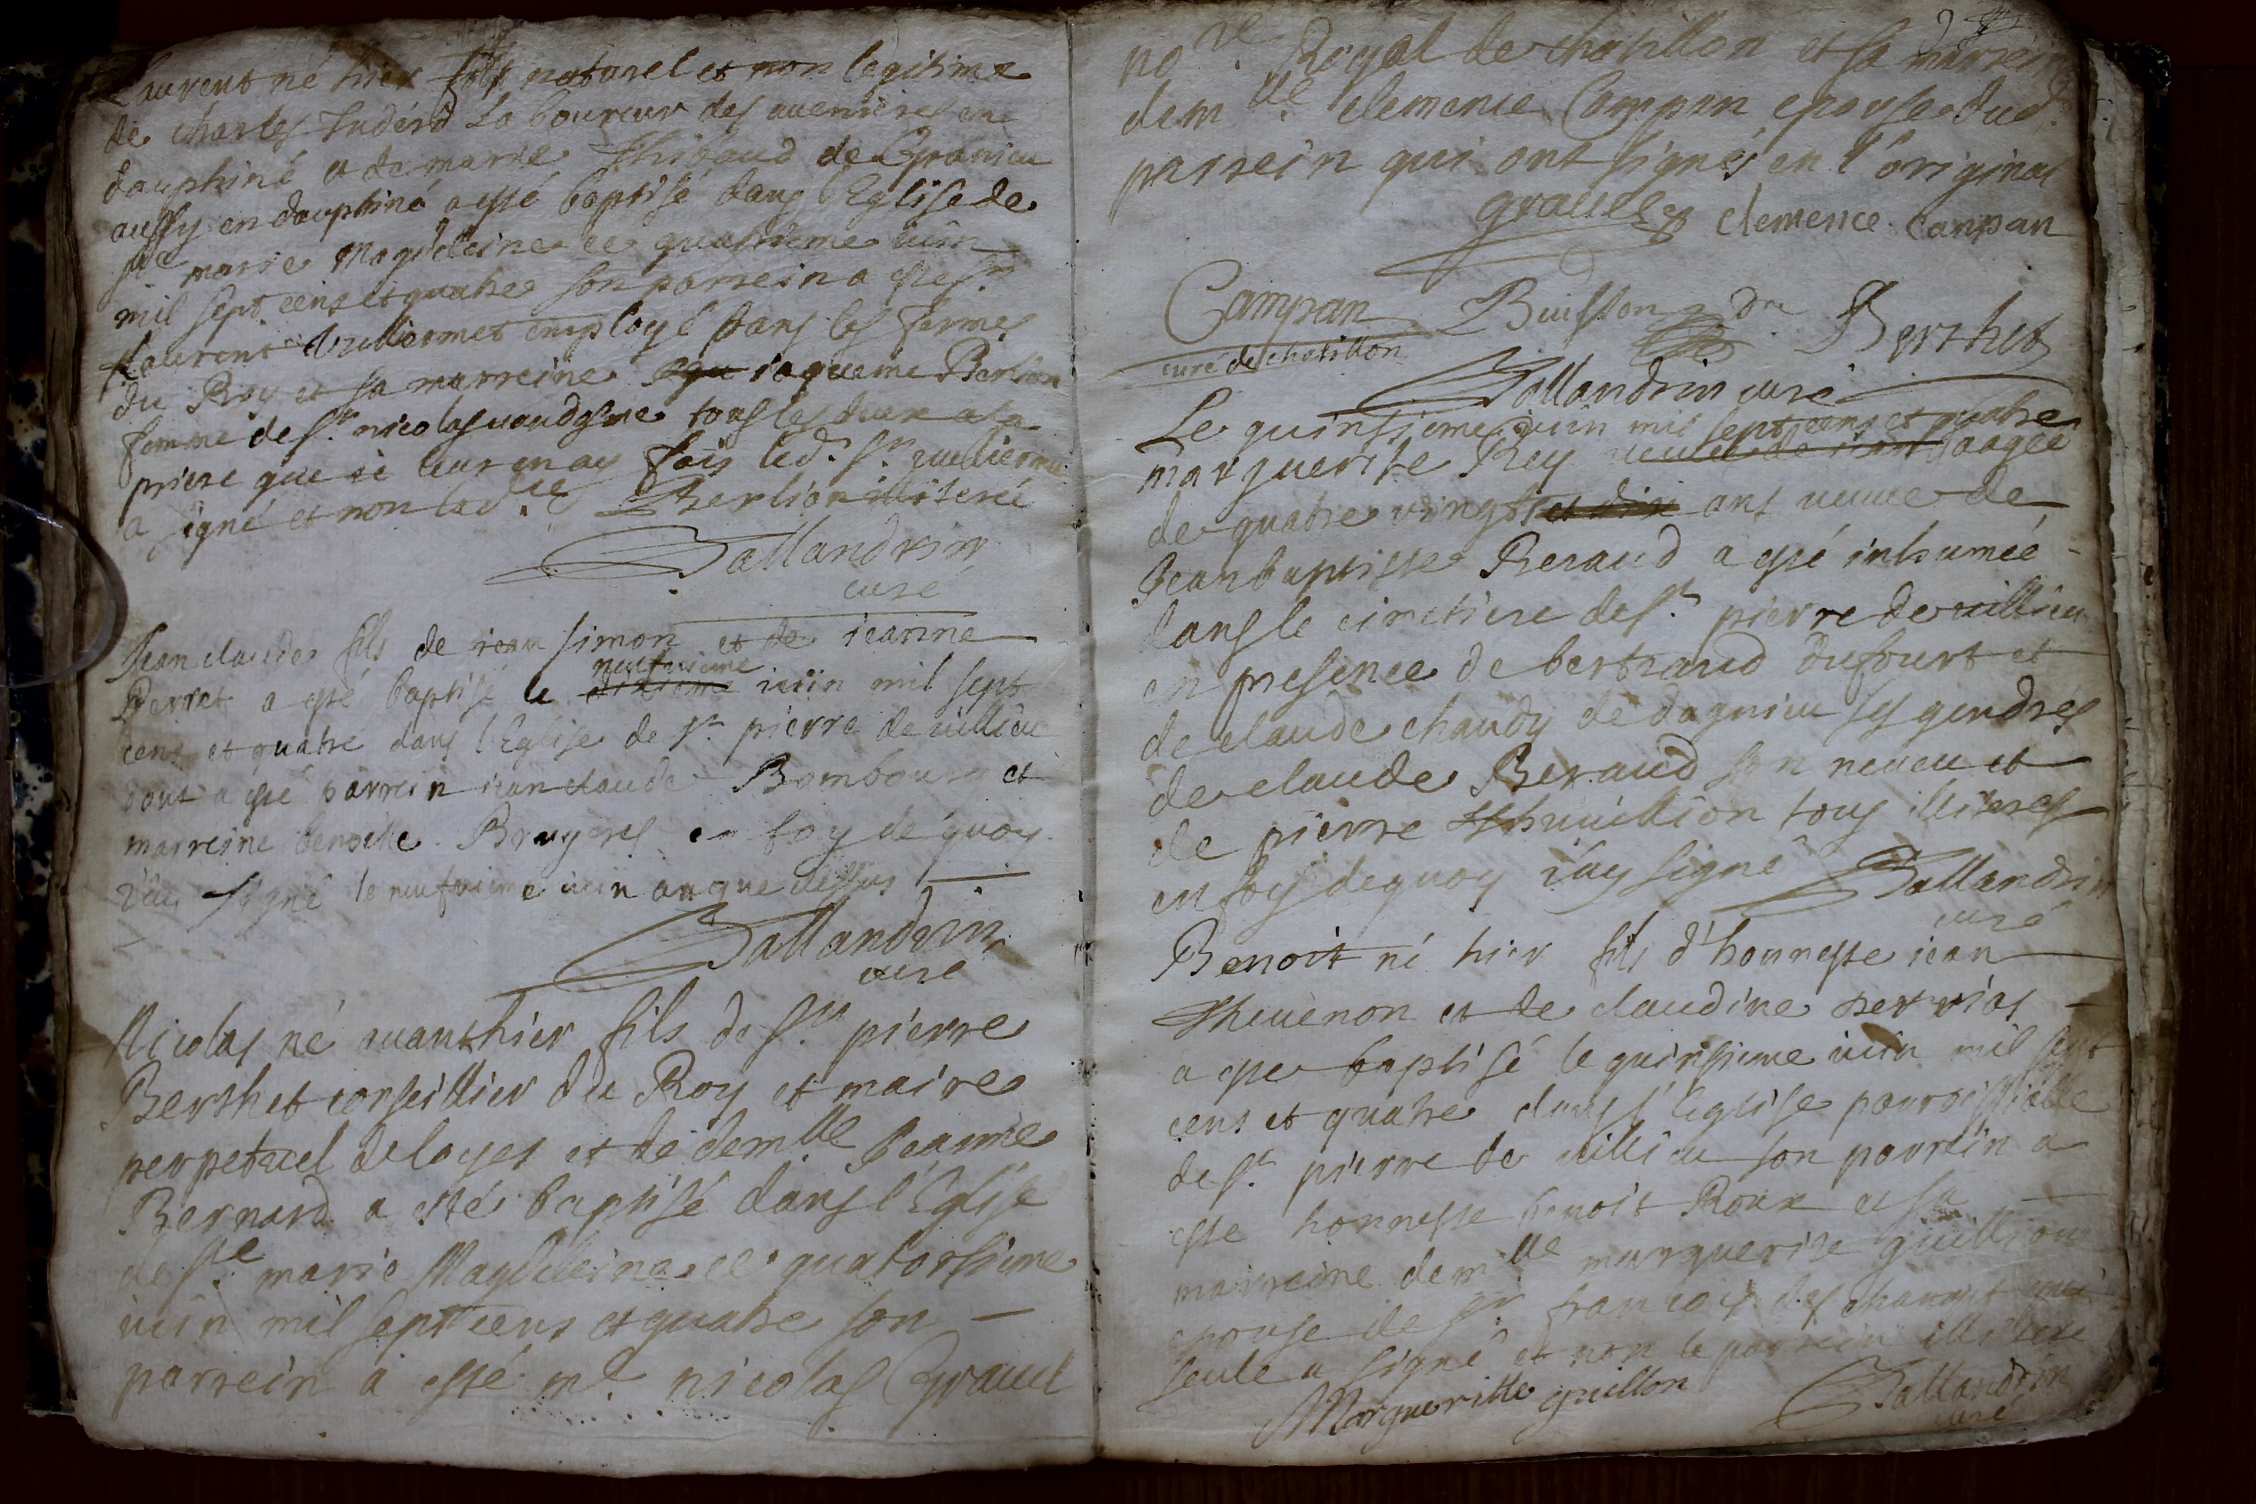 Laurent né hier fils naturel et non legitime
de charles Inderd Laboureur des avenires en
dauphiné et de marie Thigaud de Granieu
aussy en dauphiné a esté baptisé dans l'Eglise de
ste marie Magdeleine ce quatrieme iuin
mil sept cens et quatre son parrein a esté sr.
Laurent Vuilliermet employé dans les fermes
du Roy et sa marreine iaquemine Berlion
femme de sr. nicolas
priere que ie leurs en ay fais led. sr. vuilliermet
a signé et non lad.te Berlion illiteré
Ballandrin
curé
Jean claude fils de iean simon et de ieanne
neufvieme
Perret a esté baptisé le iuin mil sept
cens et quatre dans l'Eglise de st. pierre de villieu
dont a esté parrein iean claude Bombourg et
marreine benoite Bruyeres en foy de quoy
i'ay signé le neufvieme iuin an que dessus
Ballandrin
curé
Nicolas né avanthier fils de sr. pierre
Berthet conseillier du Roy et maire
perpetuel de loyes et de demlle Jeanne
Bernard a esté baptisé dans l'Eglise
de ste marie Magdeleine ce quatorsieme
iuin mil sept cens et quatre son
parrein a esté me. nicolas Gravel
nore. Royal de chatillon et sa marreine
demlle. clemence Campan epouse dud.
parrein qui ont signés en l'original
gravel clemence Canpan
Campan Buisson Berthet
curé de chatillon
Ballandrin curé
Le quinsieme iuin mil sept cens et quatre
marguerite Rey aagée
de quatre vingts et dix ans veuve de
Jean baptiste Beraud a esté inhumée
dans le cimetiere de st. pierre de villieu
en presence de bertrand dufourt et
de claude chaudy de dagnieu ses gendres
de claude Beraud son neveu et
de pierre Thuillion tous illiterés
en foy de quoy i'ay signé Ballandrin
curé
Benoit né hier fils d'honneste iean
Thevenon et de claudine
a esté baptisé le quinsieme iuin mil sept
cens et quatre dans l'Eglise parroissialle
de st. pierre de villieu son parrein a
esté honneste benoit Roux et sa
marreine demlle marguerite guillion
epouse de sr. francois des
seule a signé et non le parrein illiteré
Margueritte guillon Ballandrin
curé